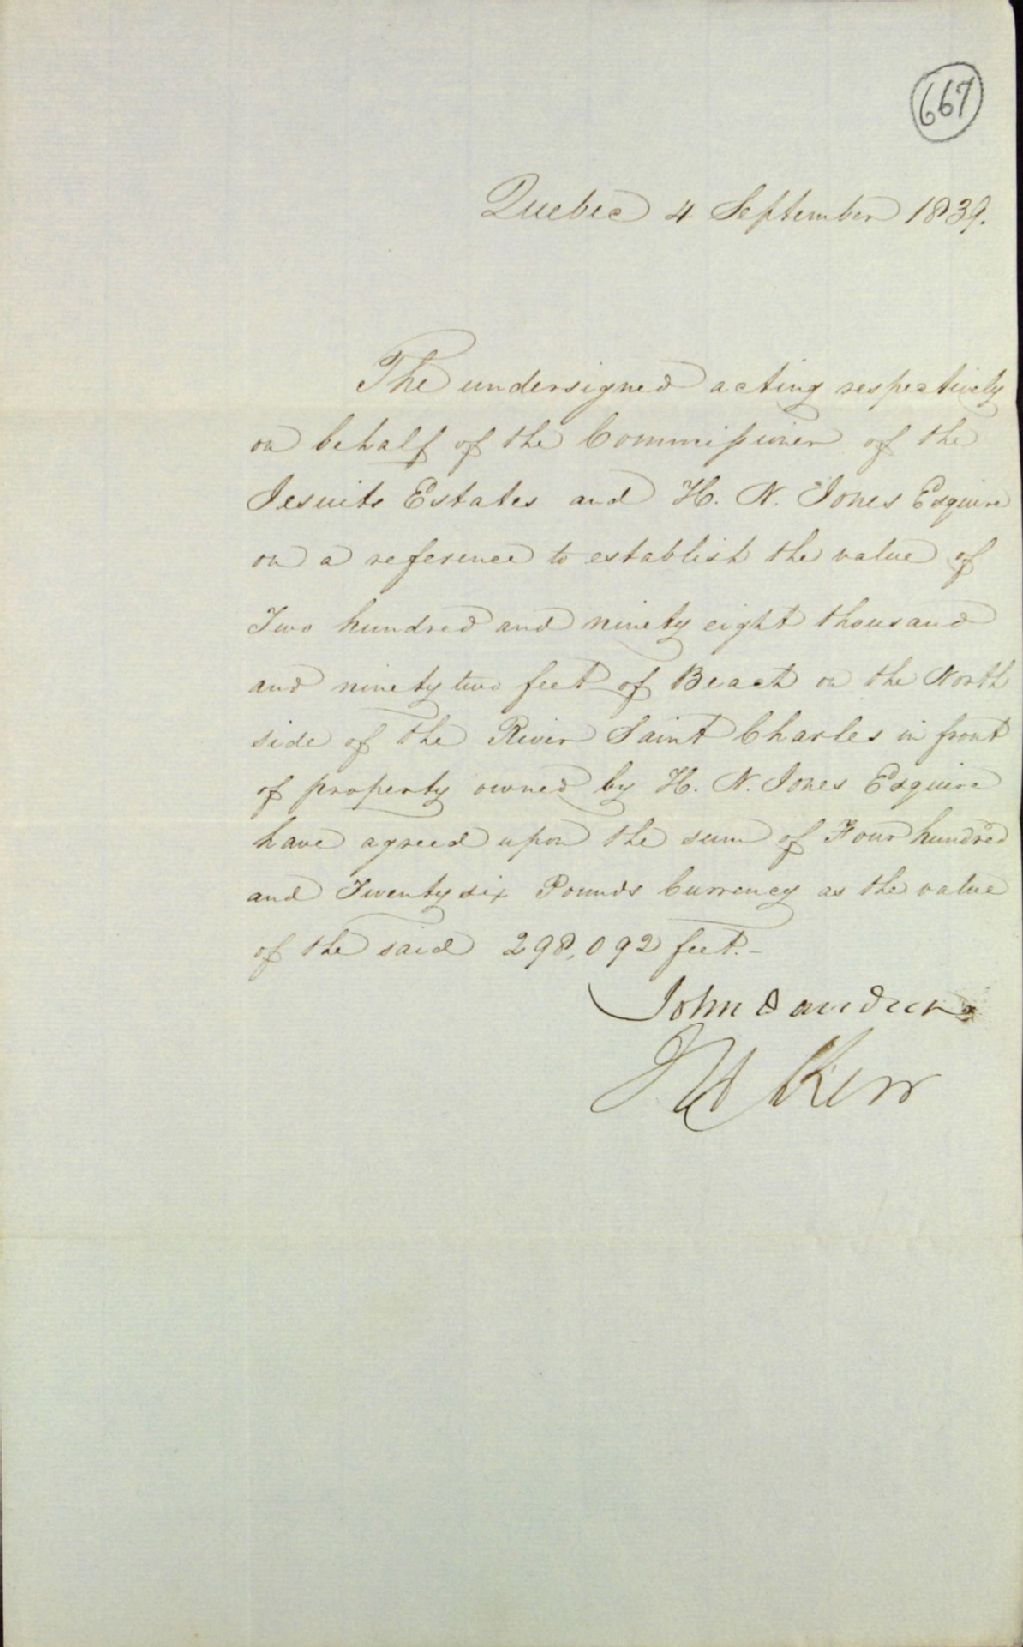 667
Quebec 4 September 1839.
The undersigned acting respectively
on behalf of the Commissioner of the
Jesuits Estates and H. N. Jones Esquire
on a reference to establish the value of
Two hundred and ninety eight thousand
and ninety two feet of Beach on the North
side of the River Saint Charles in front
of property owned by H. N. Jones Esquire
have agreed upon the sum of Four hundred
and Twenty six Pounds Currency as the value
of the said 298,092 feet.-
John
Kerr